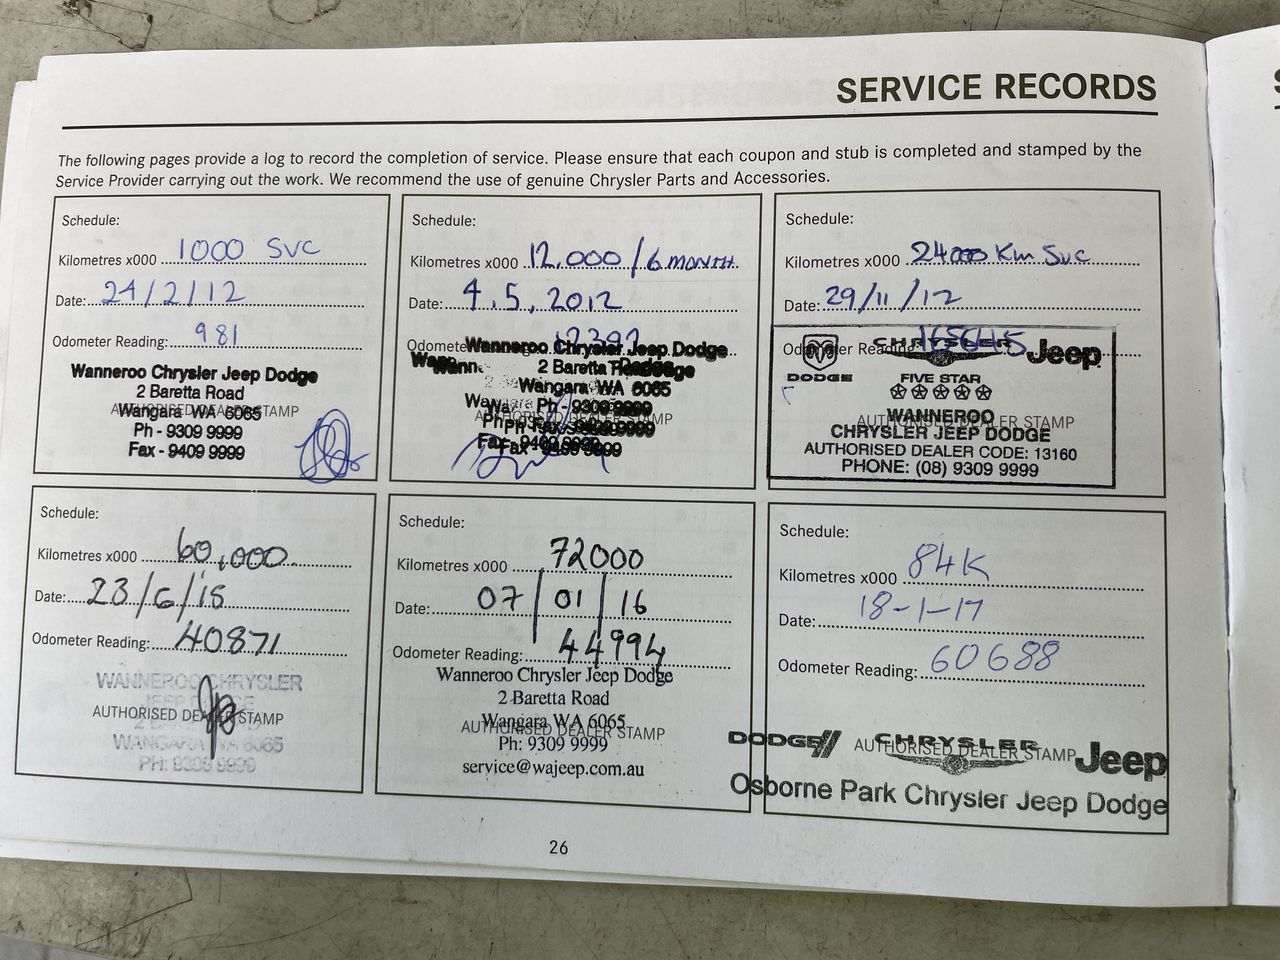 SERVICE RECORDS
The following pages provide a log to record the completion of service. Please ensure that each coupon and stub is completed and stamped by the
Service Provider carrying out the work. We recommend the use of genuine Chrysler Parts and Accessories.
Schedule:
Kilometres x000 1000 SVC
Date: 24/2/12
Odometer Reading: 981
Wanneroo Chrysler Jeep Dodge
2 Baretta Road
Wangara WA 6065
AUTHORISED DEALER STAMP
Ph - 9309 9999
Fax - 9409 9999
Schedule:
Kilometres x000 12.000 / 6 MONTH.
Date: 4.5.2012
Odometer
Wanneroo Chrysler Jeep Dodge
2 Baretta Road
Wangara WA 6065
AUTHORISED DEALER STAMP
Ph - 9309 9999
Fax - 9409 9999
Schedule:
Kilometres x000 24000 Km Svc
Date: 29/11/12
Odometer Reading:
CHRYSLER Jeep
DODGE FIVE STAR
WANNEROO
AUTHORISED DEALER STAMP
CHRYSLER JEEP DODGE
AUTHORISED DEALER CODE: 13160
PHONE: (08) 9309 9999
Schedule:
Kilometres x000 60,000
Date: 23/6/15
Odometer Reading: 40871
WANNEROO CHRYSLER
JEEP DODGE
AUTHORISED DEALER STAMP
WANGARA WA 6065
PH: 9309 9999
Schedule:
Kilometres x000 72000
Date: 07/01/16
Odometer Reading: 44994
Wanneroo Chrysler Jeep Dodge
2 Baretta Road
Wangara WA 6065
AUTHORISED DEALER STAMP
Ph: 9309 9999
service@wajeep.com.au
Schedule:
Kilometres x000 84K
Date: 18-1-17
Odometer Reading: 60688
DODGE CHRYSLER Jeep
AUTHORISED DEALER STAMP
Osborne Park Chrysler Jeep Dodge
26